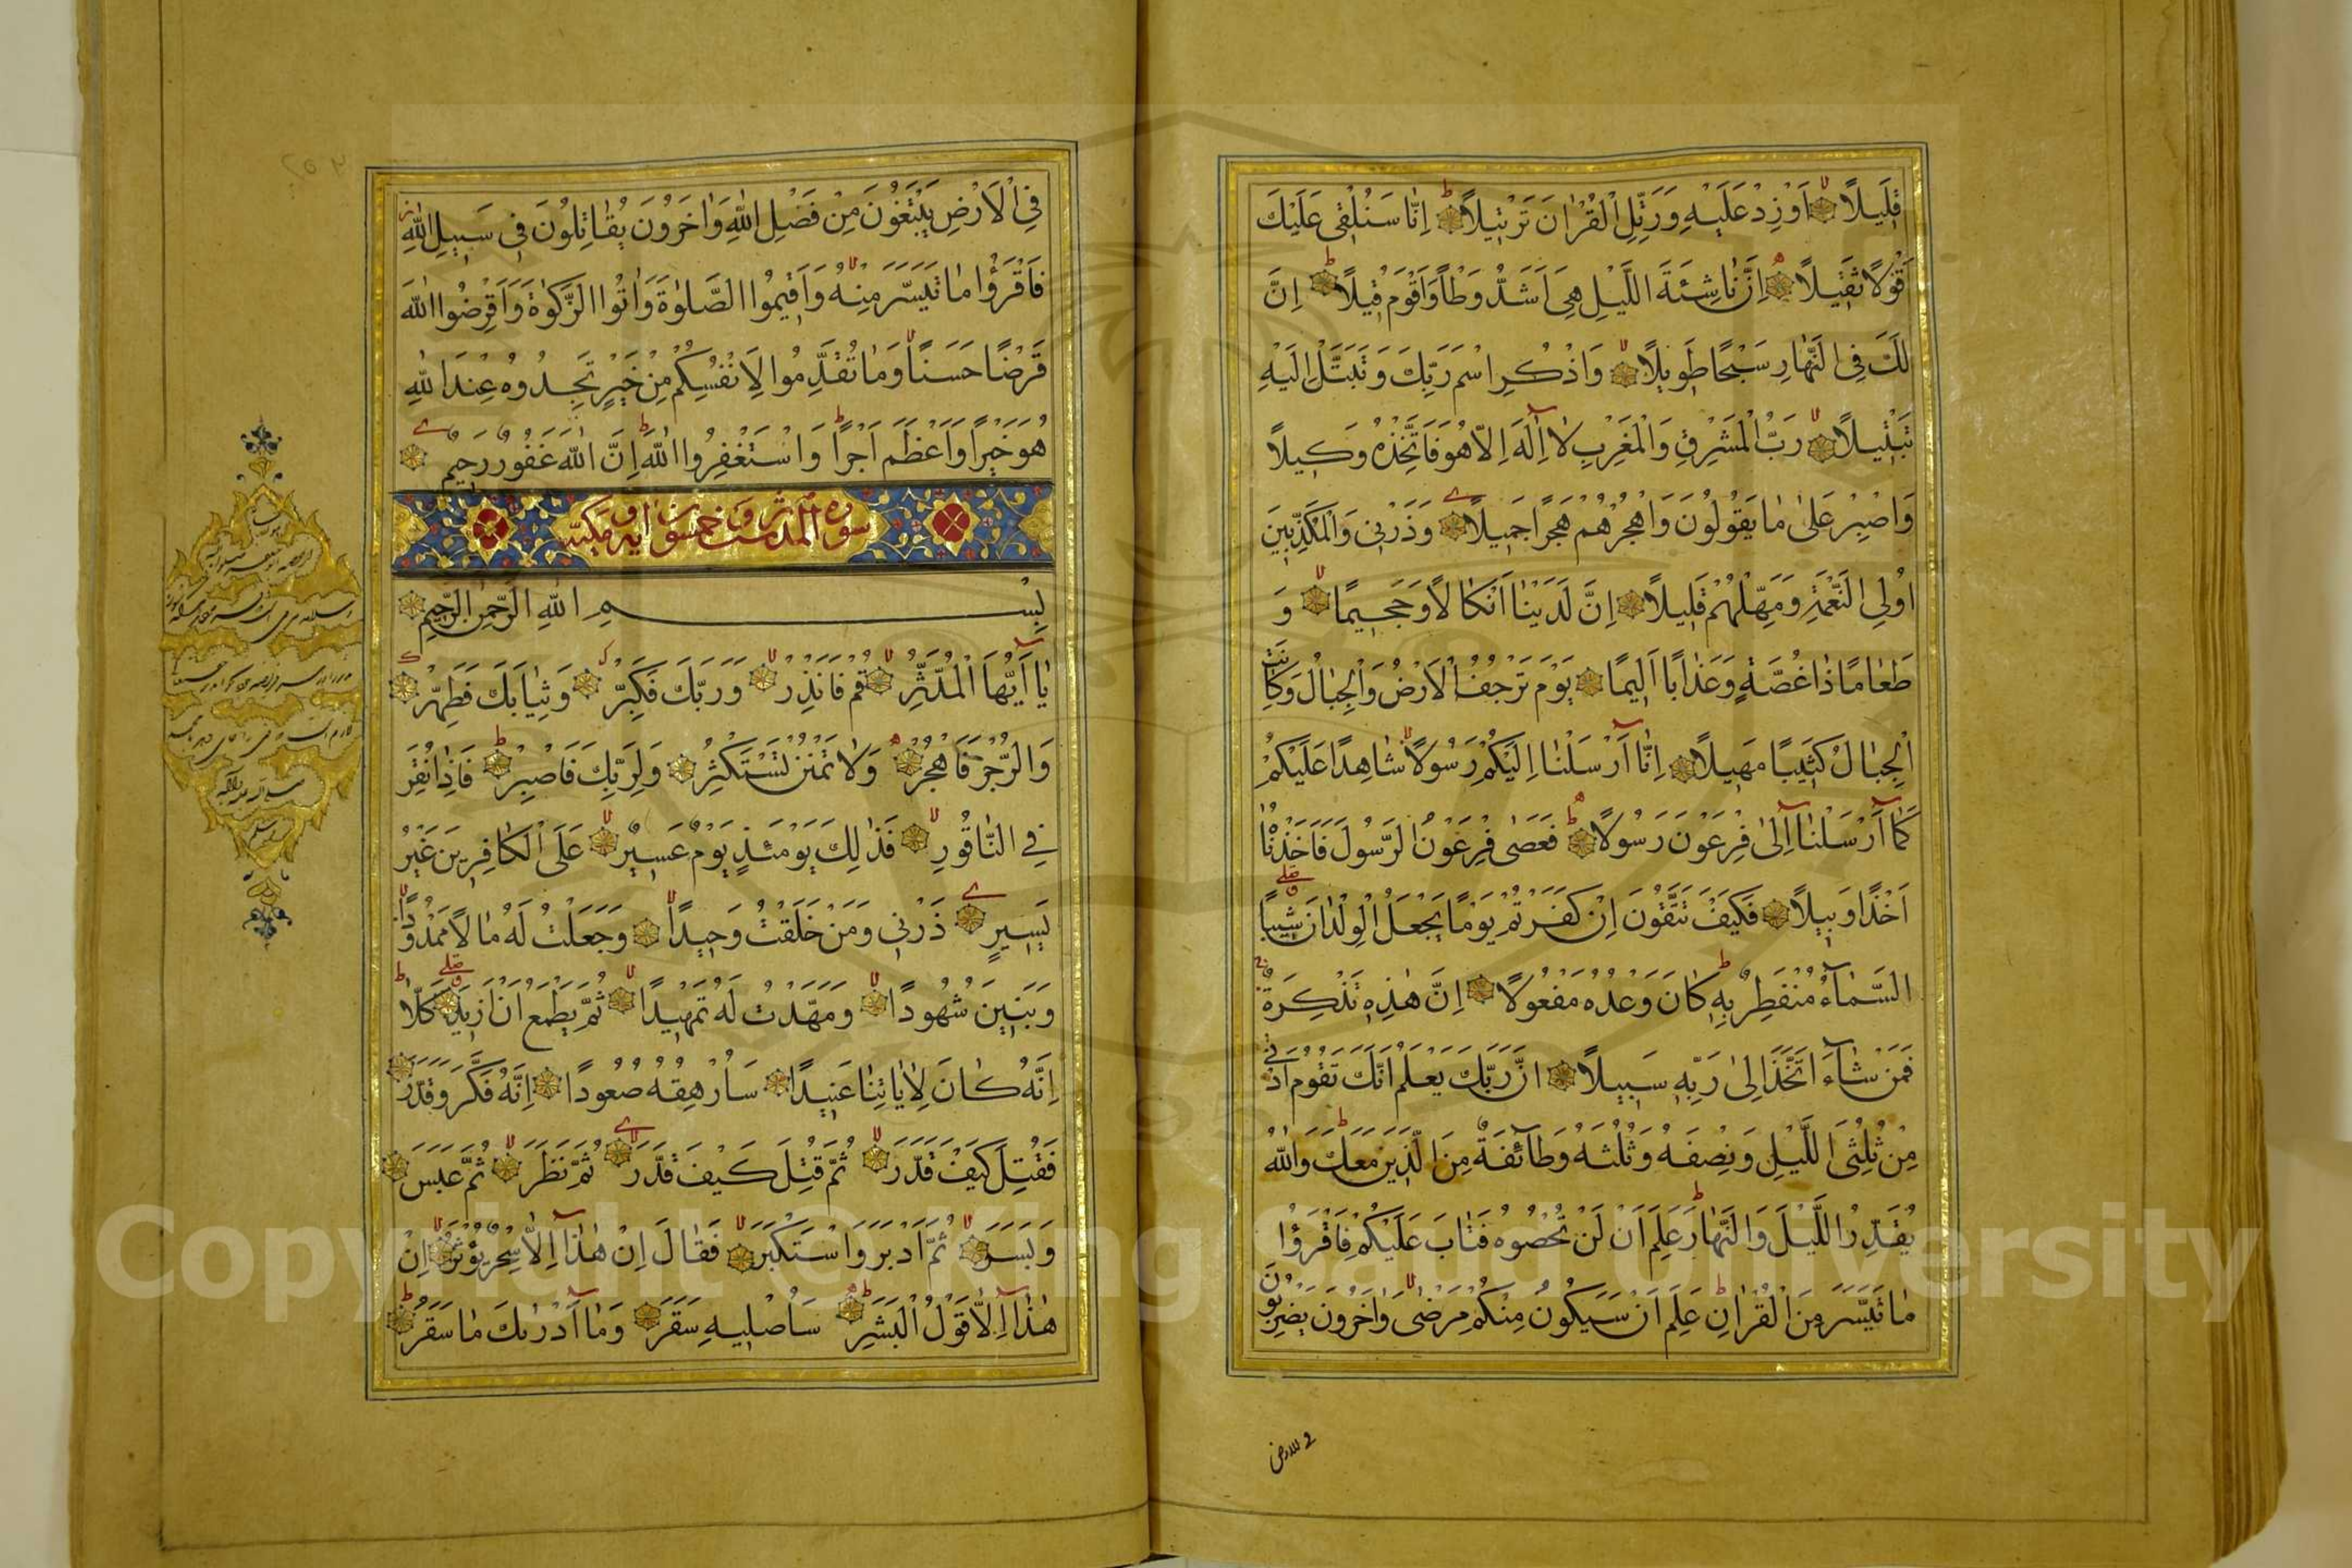 قَلِيلًا اَوْ زِدْ عَلَيْهِ وَرَتِّلِ الْقُرْاٰنَ تَرْتِيلًا اِنَّا سَنُلْقِى عَلَيْكَ
قَوْلًا ثَقِيلًا اِنَّ نَاشِئَةَ اللَّيْلِ هِىَ اَشَدُّ وَطْأً وَاَقْوَمُ قِيلًا اِنَّ
لَكَ فِى النَّهَارِ سَبْحًا طَوِيلًا وَاذْكُرِ اسْمَ رَبِّكَ وَتَبَتَّلْ اِلَيْهِ
تَبْتِيلًا رَبُّ الْمَشْرِقِ وَالْمَغْرِبِ لَا اِلٰهَ اِلَّا هُوَ فَاتَّخِذْهُ وَكِيلًا
وَاصْبِرْ عَلٰى مَا يَقُولُونَ وَاهْجُرْهُمْ هَجْرًا جَمِيلًا وَذَرْنِى وَالْمُكَذِّبِينَ
اُولِى النَّعْمَةِ وَمَهِّلْهُمْ قَلِيلًا اِنَّ لَدَيْنَا اَنْكَالًا وَجَحِيمًا وَ
طَعَامًا ذَا غُصَّةٍ وَعَذَابًا اَلِيمًا يَوْمَ تَرْجُفُ الْاَرْضُ وَالْجِبَالُ وَكَانَتِ
الْجِبَالُ كَثِيبًا مَهِيلًا اِنَّا اَرْسَلْنَا اِلَيْكُمْ رَسُولًا شَاهِدًا عَلَيْكُمْ
كَمَا اَرْسَلْنَا اِلٰى فِرْعَوْنَ رَسُولًا فَعَصٰى فِرْعَوْنُ الرَّسُولَ فَاَخَذْنَاهُ
اَخْذًا وَبِيلًا فَكَيْفَ تَتَّقُونَ اِنْ كَفَرْتُمْ يَوْمًا يَجْعَلُ الْوِلْدَانَ شِيبًا
السَّمَاءُ مُنْفَطِرٌ بِهِ كَانَ وَعْدُهُ مَفْعُولًا اِنَّ هٰذِهِ تَذْكِرَةٌ
فَمَنْ شَاءَ اتَّخَذَ اِلٰى رَبِّهِ سَبِيلًا اِنَّ رَبَّكَ يَعْلَمُ اَنَّكَ تَقُومُ اَدْنٰى
مِنْ ثُلُثَىِ اللَّيْلِ وَنِصْفَهُ وَثُلُثَهُ وَطَائِفَةٌ مِنَ الَّذِينَ مَعَكَ وَاللّٰهُ
يُقَدِّرُ اللَّيْلَ وَالنَّهَارَ عَلِمَ اَنْ لَنْ تُحْصُوهُ فَتَابَ عَلَيْكُمْ فَاقْرَؤُا
مَا تَيَسَّرَ مِنَ الْقُرْاٰنِ عَلِمَ اَنْ سَيَكُونُ مِنْكُمْ مَرْضٰى وَاٰخَرُونَ يَضْرِبُونَ
فى الارض
فِى الْاَرْضِ يَبْتَغُونَ مِنْ فَضْلِ اللّٰهِ وَاٰخَرُونَ يُقَاتِلُونَ فِى سَبِيلِ اللّٰهِ
فَاقْرَؤُا مَا تَيَسَّرَ مِنْهُ وَاَقِيمُوا الصَّلٰوةَ وَاٰتُوا الزَّكٰوةَ وَاَقْرِضُوا اللّٰهَ
قَرْضًا حَسَنًا وَمَا تُقَدِّمُوا لِاَنْفُسِكُمْ مِنْ خَيْرٍ تَجِدُوهُ عِنْدَ اللّٰهِ
هُوَ خَيْرًا وَاَعْظَمَ اَجْرًا وَاسْتَغْفِرُوا اللّٰهَ اِنَّ اللّٰهَ غَفُورٌ رَحِيمٌ
سورة المدثر ست وخمسون اية مكية
بِسْمِ اللّٰهِ الرَّحْمٰنِ الرَّحِيمِ
يَا اَيُّهَا الْمُدَّثِّرُ قُمْ فَاَنْذِرْ وَرَبَّكَ فَكَبِّرْ وَثِيَابَكَ فَطَهِّرْ
وَالرُّجْزَ فَاهْجُرْ وَلَا تَمْنُنْ تَسْتَكْثِرُ وَلِرَبِّكَ فَاصْبِرْ فَاِذَا نُقِرَ
فِى النَّاقُورِ فَذٰلِكَ يَوْمَئِذٍ يَوْمٌ عَسِيرٌ عَلَى الْكَافِرِينَ غَيْرُ
يَسِيرٍ ذَرْنِى وَمَنْ خَلَقْتُ وَحِيدًا وَجَعَلْتُ لَهُ مَالًا مَمْدُودًا
وَبَنِينَ شُهُودًا وَمَهَّدْتُ لَهُ تَمْهِيدًا ثُمَّ يَطْمَعُ اَنْ اَزِيدَ كَلَّا
اِنَّهُ كَانَ لِاٰيَاتِنَا عَنِيدًا سَاُرْهِقُهُ صَعُودًا اِنَّهُ فَكَّرَ وَقَدَّرَ
فَقُتِلَ كَيْفَ قَدَّرَ ثُمَّ قُتِلَ كَيْفَ قَدَّرَ ثُمَّ نَظَرَ ثُمَّ عَبَسَ
وَبَسَرَ ثُمَّ اَدْبَرَ وَاسْتَكْبَرَ فَقَالَ اِنْ هٰذَا اِلَّا سِحْرٌ يُؤْثَرُ اِنْ
هٰذَا اِلَّا قَوْلُ الْبَشَرِ سَاُصْلِيهِ سَقَرَ وَمَا اَدْرٰىكَ مَا سَقَرُ
Copyright © King Saud University